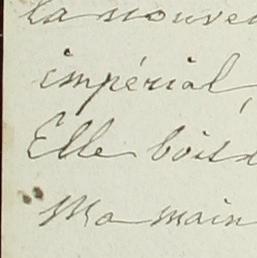 la nouve
impérial,
Elle
Ma main